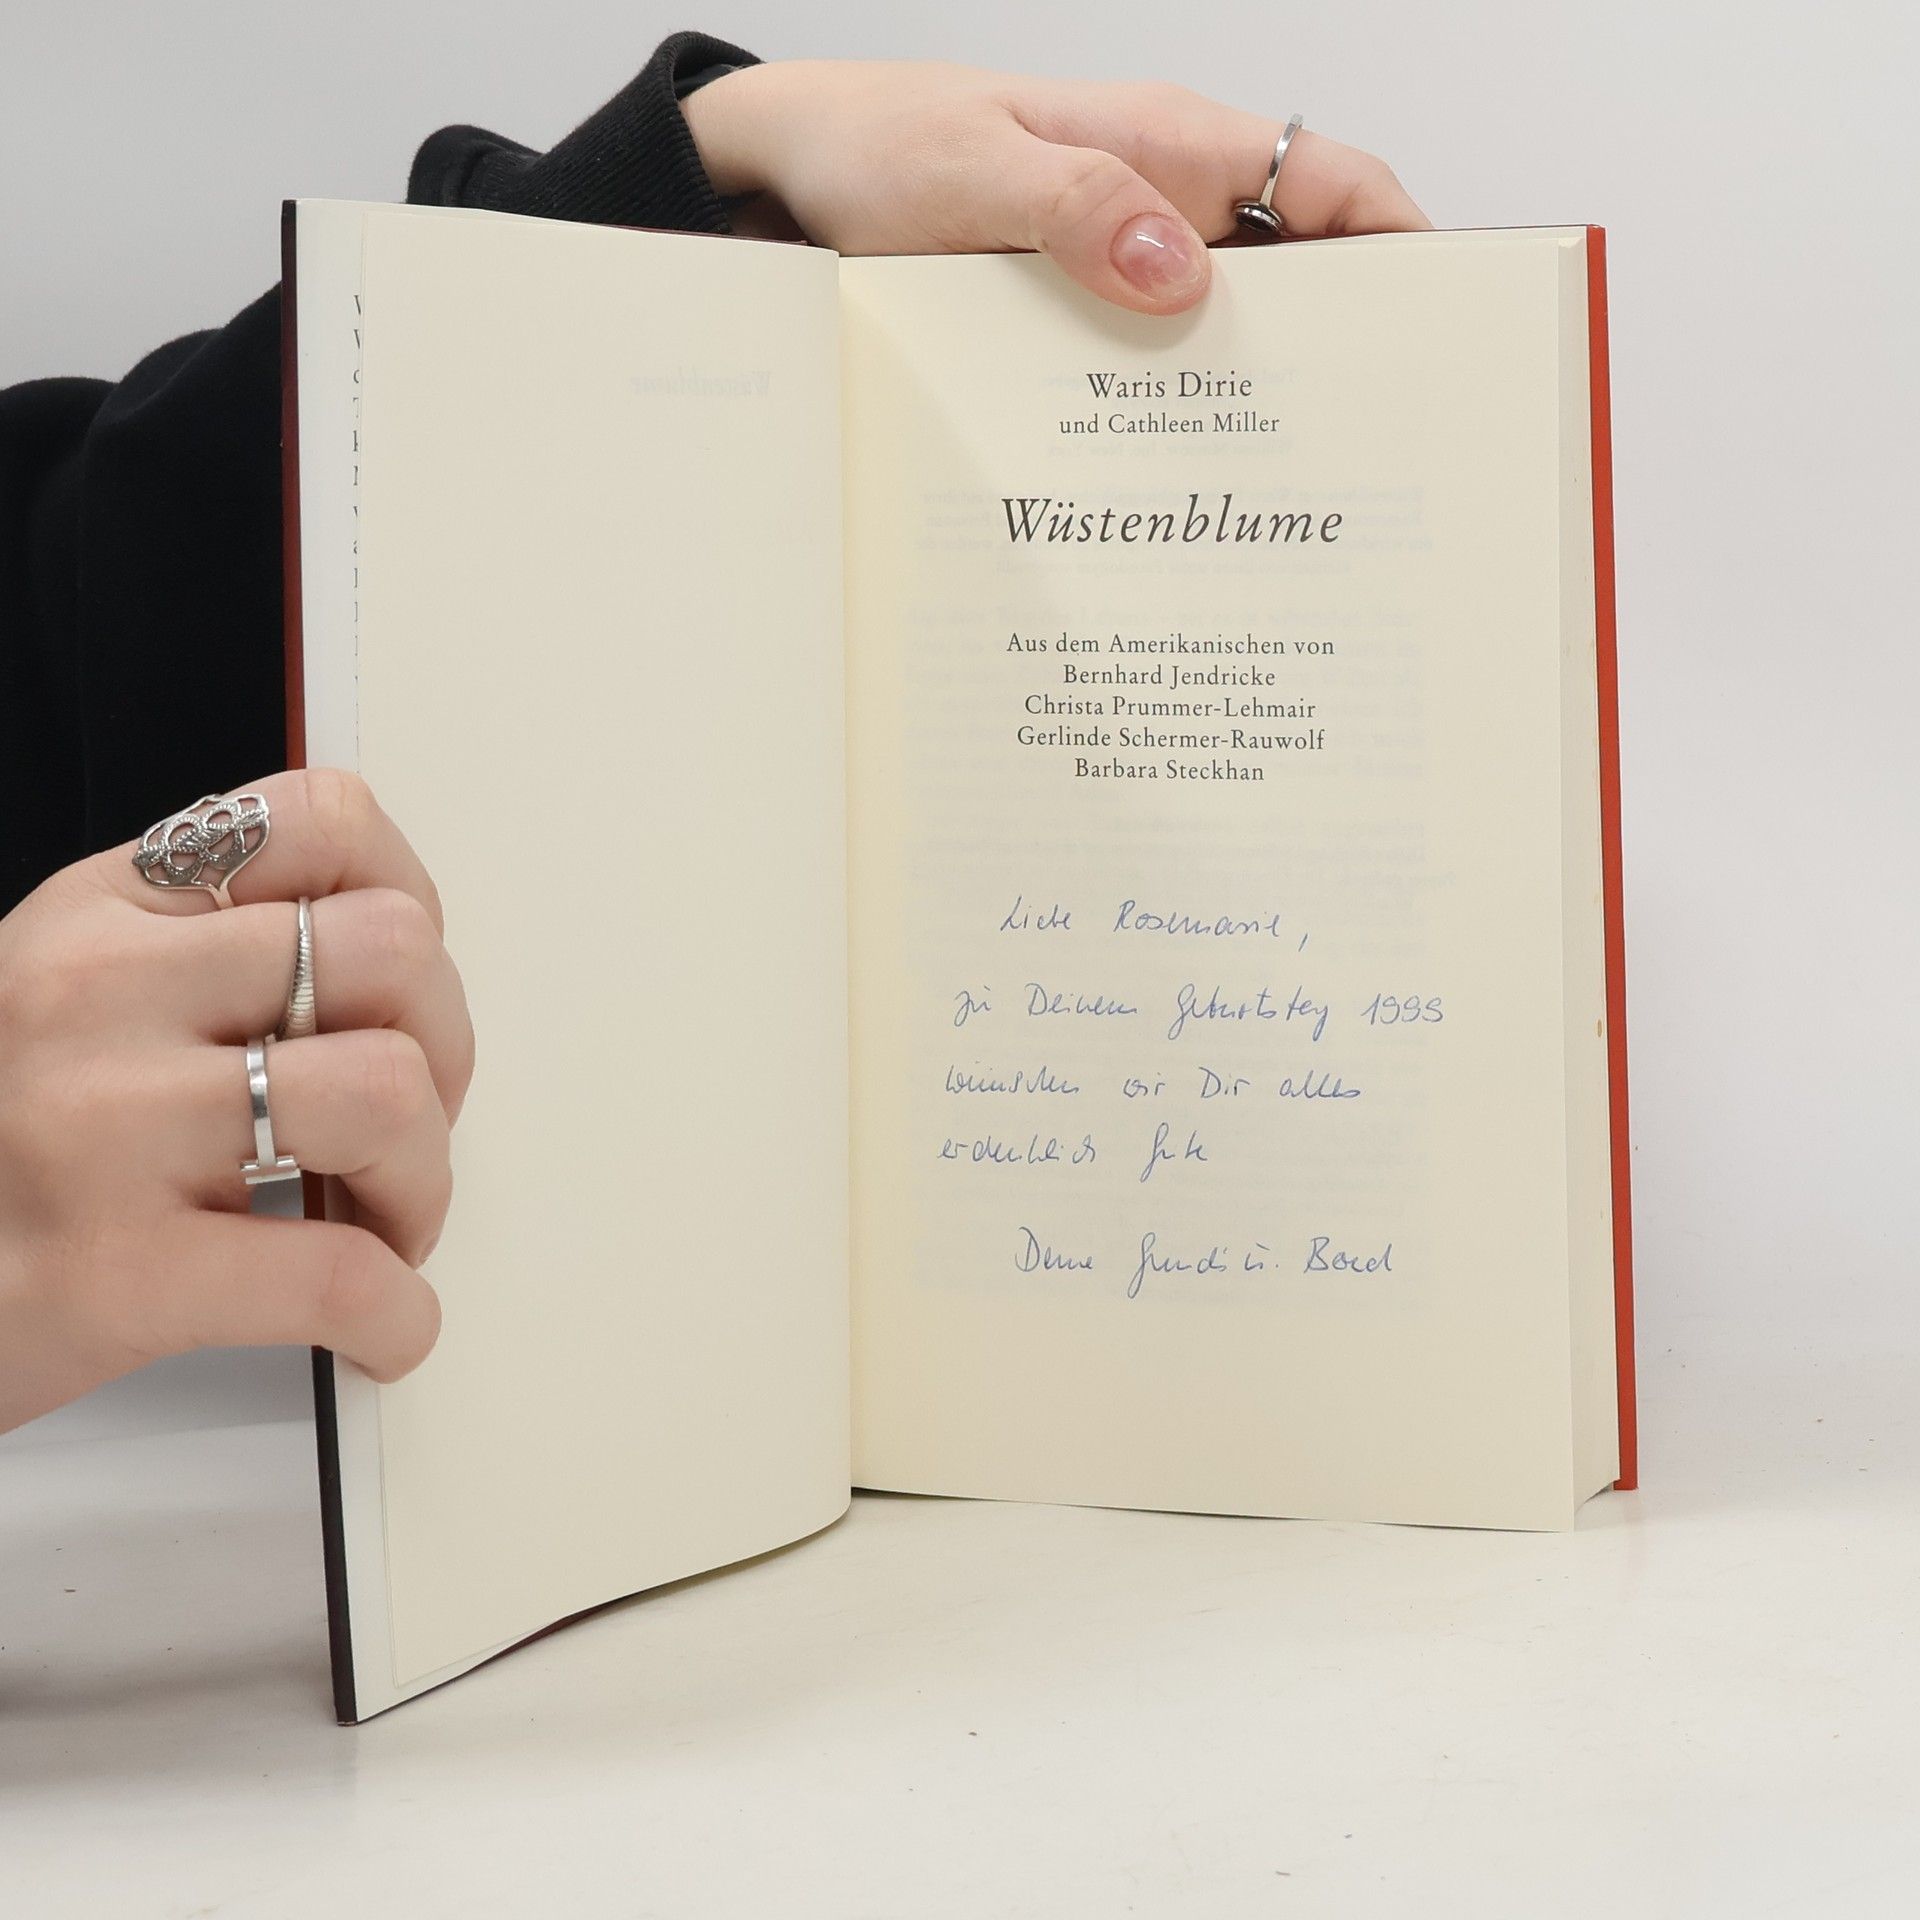 Waris Dirie
und Cathleen Miller
Wüstenblume
Aus dem Amerikanischen von
Bernhard Jendricke
Christa Prummer-Lehmair
Gerlinde Schermer-Rauwolf
Barbara Steckhan
Liebe Rosemarie,
zu Deinem Geburtstag 1999
wünschen wir Dir alles
erdenklich Gute
Deine u.